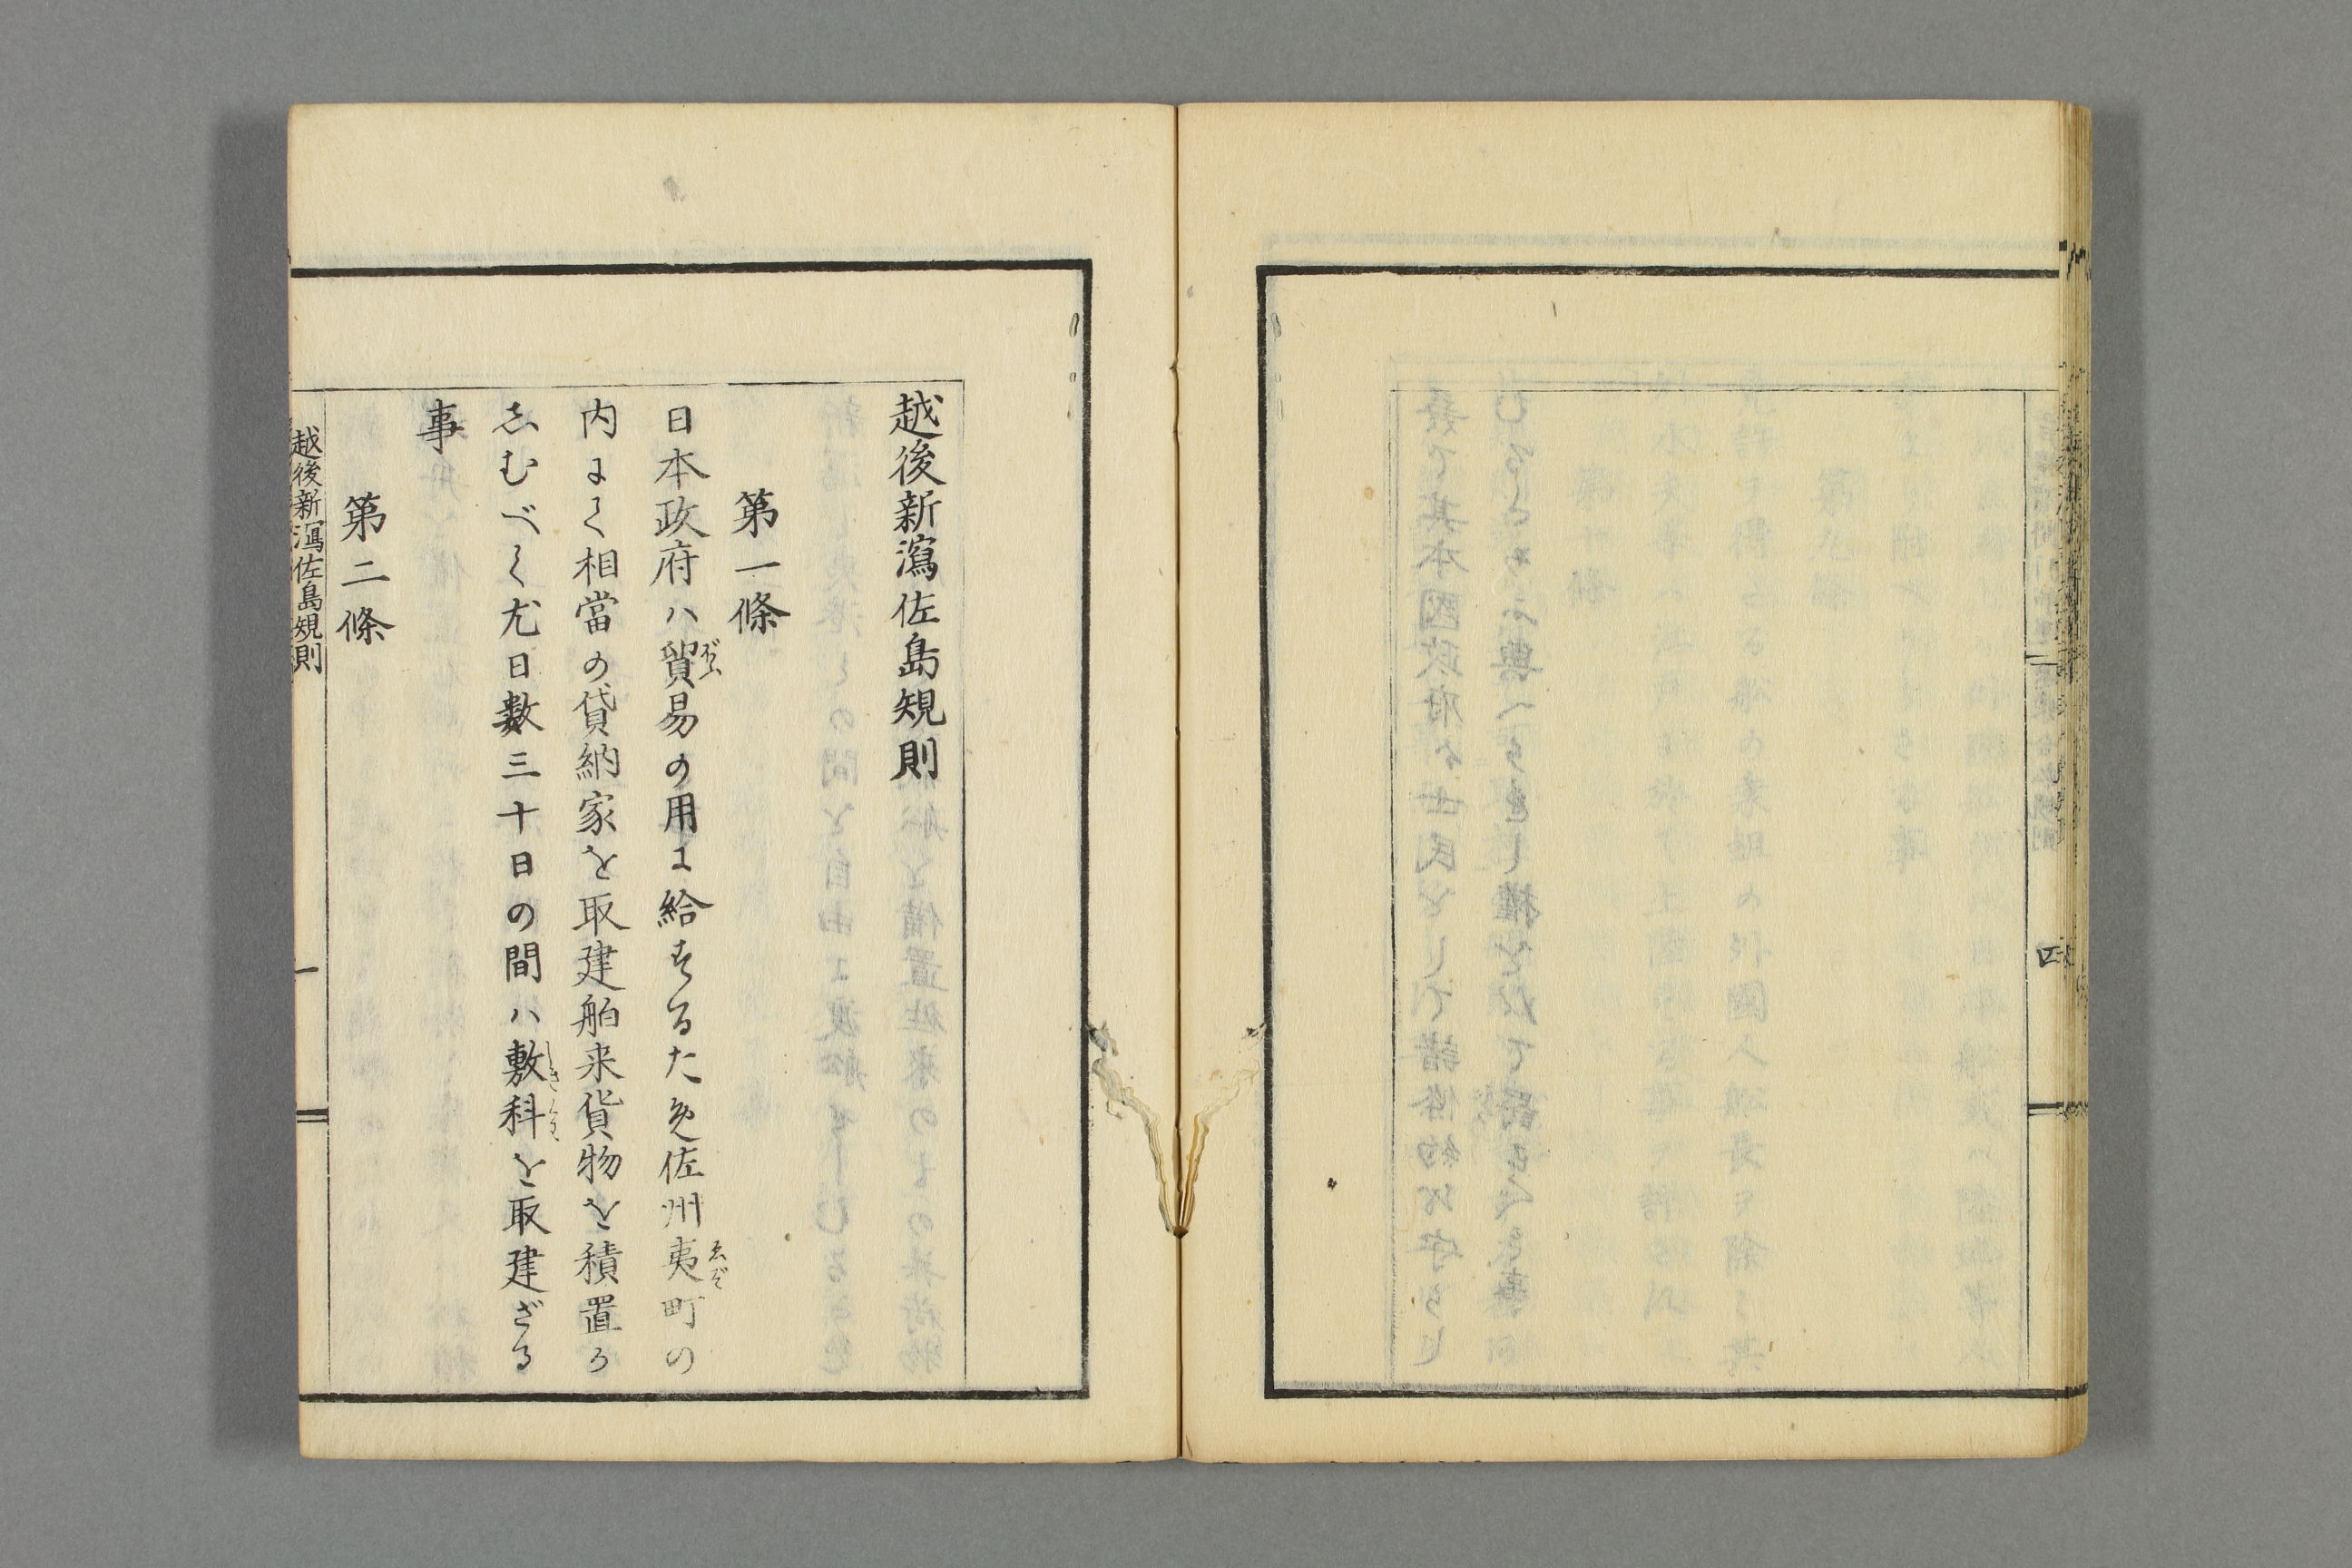 四
越後新瀉佐島規則
第一條
日本政府ハ貿易の用に給するため佐州夷町の
内によく相當の貸納家を取建舶来貨物を積置か
しむべく尤日数三十日の間ハ敷科を取建ざる
事
第二條
越後新瀉佐島規則
一